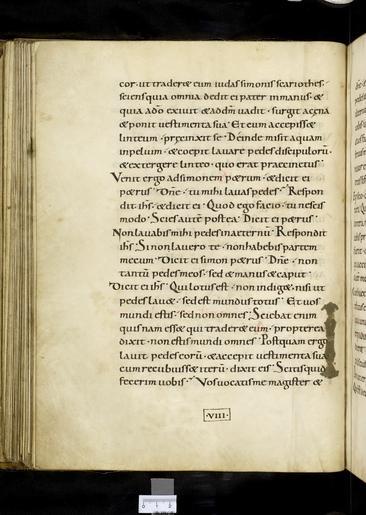 cor · ut traderet eum iudas simonis scariothes ·
sciens quia omnia dedit ei pater in manus · &
quia a dō exiuit & ad dm̄ uadit · surgit a cena
& ponit uestimenta sua Et cum accepisset
linteum · precinxit se Deinde misit aquam
in peluim · & coepit lauare pedes discipulorū ·
& extergere linteo · quo erat praecinctus
Venit ergo ad simonem p&rum · & dicit ei
p&rus Dn̄e · tu mihi lauas pedes Respon
dit ih̄s · & dicit ei Quod ego facio · tu nescis
modo · Scies aut̄ postea Dicit ei p&rus
Non lauabis mihi pedes in aeternū Respondit
ih̄s Si non lauero te · non habebis partem
mecum Dicit ei simon p&rus Dn̄e · non
tantū pedes meos · sed & manus & caput
Dicit ei ih̄s Qui lotus est · non indig& · nisi ut
pedes lau& · sed est mundus totus Et uos
mundi estis · sed non omnes Sciebat enim
quisnam ess& qui trader& eum · propterea
dixit · non estis mundi omnes Postquam ergo
lauit pedes eorū · & accepit uestimenta sua
cum recubuiss& iterū · dixit eis Scitis quid
fecerim uobis Vos uocatis me magister &
· VIII ·